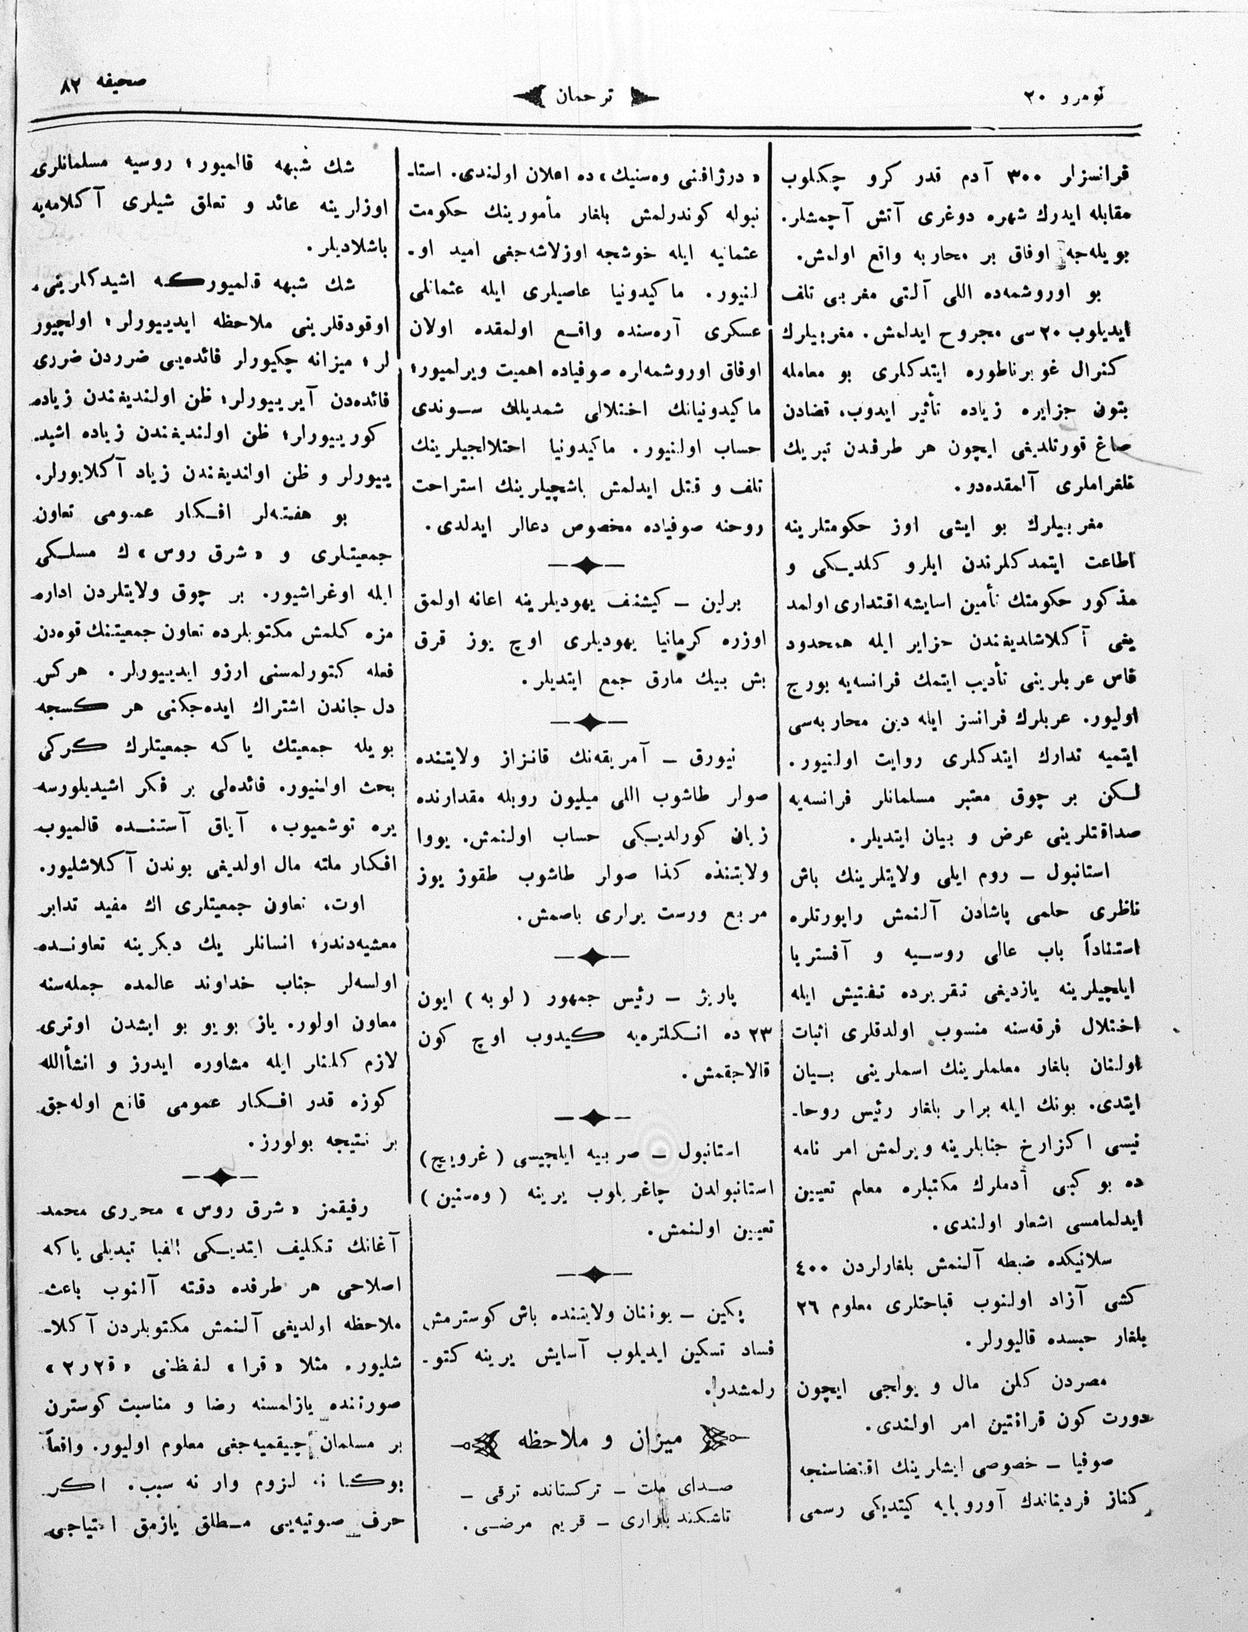 نومرو ۲۰
ترجمان
صحیفه ۸۲
فرانسزلر ۳۰۰ آدم قدر كرو چكلوب
مقابله ایدرك شهره دوغری آتش آچمشلر.
بویله‌جه اوفاق بر محاربه واقع اولمش.
بو اوروشمه‌ده اللی آلتی مغربی تلف
ایدیلوب ۲۰ سی مجروح ایدلمش. مغربیلرك
كنرال غوبرناطوره ایتدكلری بو معامله
بتون جزایره زیاده تأثیر ایدوب، قضادن
صاغ قورتلدیغی ایچون هر طرفدن تبریك
تلغراملری آلمقده‌در.
مغربیلرك بو ایشی اوز حكومتلرینه
اطاعت ایتمدكلرندن ایلرو كلدیكی و
مذكور حكومتك تأمین اسایشه اقتداری اولمد
یغی آكلاشلدیغندن جزایر ایله همحدود
فاس عربلرینی تأدیب ایتمك فرانسه‌یه بورج
اولیور. عربلرك فرانسز ایله دین محاربه‌سی
ایتمیه تدارك ایتدكلری روایت اولنیور.
لكن بر چوق معتبر مسلمانلر فرانسه‌یه
صداقتلرینی عرض و بیان ایتدیلر.
استانبول ــ روم ایلی ولایتلرینك باش
ناظری حلمی پاشادن آلنمش راپورتلره
استناداً باب عالی روسیه و آفستریا
ایلچیلرینه یازدیغی تقریرده تفتیش ایله
اختلال فرقه‌سنه منسوب اولدقلری اثبات
اولنان بلغار معلملرینك اسملرینی بیان
ایتدی. بونك ایله برابر بلغار رئیس روحا-
نیسی اكزارخ جنابلرینه ویرلمش امر نامه
ده بو كبی آدملرك مكتبلره معلم تعیین
ایدلمامسی اشعار اولندی.
سلانیكده ضبطه آلنمش بلغارلردن ٤۰۰
كشی آزاد اولنوب قباحتلری معلوم ۲٦
بلغار حبسده قالیورلر.
مصردن كلن مال و یولجی ایچون
دورت كون قرانتین امر اولندی.
صوفیا ــ خصوصی ایشلرینك اقتضاسنجه
كناز فردیناندك آوروپایه كیتدیكی رسمی
«درژافنی وه‌سنیك» ده اعلان اولندی. استا-
نبوله كوندرلمش بلغار مأمورینك حكومت
عثمانیه ایله خوشجه اوزلاشه‌جغی امید او-
لنیور. ماكیدونیا عاصیلری ایله عثمانلی
عسكری آره‌سنده واقع اولمقده اولان
اوفاق اوروشمه‌لره صوفیاده اهمیت ویرلمیور؛
ماكیدونیانك اختلالی شمدیلك سوندی
حساب اولنیور. ماكیدونیا اختلالجیلرینك
تلف و قتل ایدلمش باشچیلرینك استراحت
روحنه صوفیاده مخصوص دعالر ایدلدی.
برلین ــ كیشنف یهودیلرینه اعانه اولمق
اوزره كرمانیا یهودیلری اوچ یوز قرق
بش بیك مارق جمع ایتدیلر.
نیورق ــ آمریقه‌نك قانزاز ولایتنده
صولر طاشوب اللی میلیون روبله مقدارنده
زیان كورلدیكی حساب اولنمش. یووا
ولایتنده كذا صولر طاشوب طقوز یوز
مربع ورست یرلری باصمش.
پاریژ ــ رئیس جمهور (لوبه) ایون
۲۳ ده انكلتره‌یه كیدوب اوچ كون
قالاجقمش.
استانبول ــ صربیه ایلچیسی (غرویچ)
استانبولدن چاغریلوب یرینه (وه‌سنین)
تعیین اولنمش.
پكین ــ یوننان ولایتنده باش كوسترمش
فساد تسكین ایدیلوب آسایش یرینه كتو-
رلمشدر.
میزان و ملاحظه
صدای ملت ــ تركستانده ترقی ــ
تاشكند بازاری ــ قریم مرضی.
شك شبهه قالمیور؛ روسیه مسلمانلری
اوزلرینه عائد و تعلق شیلری آكلامه‌یه
باشلادیلر.
شك شبهه قالمیوركه اشیدكلرینی،
اوقودقلرینی ملاحظه ایدییورلر؛ اولچیور
لر؛ میزانه چكیورلر فائده‌یی ضرردن ضرری
فائده‌دن آیرییورلر؛ ظن اولندیغندن زیاده
كورییورلر؛ ظن اولندیغندن زیاده اشید-
ییورلر و ظن اولندیغندن زیاد آكلایورلر.
بو هفته‌لر افكار عمومی تعاون
جمعیتلری و «شرق روس» ك مسلكی
ایله اوغراشیور. بر چوق ولایتلردن اداره
مزه كلمش مكتوبلرده تعاون جمعیتنك قوه‌دن
فعله كتورلمسنی ارزو ایدییورلر. هركس
دل جاندن اشتراك ایده‌جكنی هر كسجه
بویله جمعیتك یاكه جمعیتلرك كركی
بحث اولنیور. فائده‌لی بر فكر اشیدیلورسه
یره توشمیوب، آیاق آستنده قالمیوب
افكار ملته مال اولدیغی بوندن آكلاشلیور.
اوت، تعاون جمعیتلری اك مفید تدابر
معشیه‌دندر؛ انسانلر یك دیكرینه تعاونده
اولسه‌لر جناب خداوند عالمده جمله‌سنه
معاون اولور. یاز بویو بو ایشدن اوتری
لازم كلنلر ایله مشاوره ایدرز و انشأالله
كوزه قدر افكار عمومی قانع اوله‌جق
بر نتیجه بولورز.
رفیقمز «شرق روس» محرری محمد
آغانك تكلیف ایتدیكی الفبا تبدیلی یاكه
اصلاحی هر طرفده دقته آلنوب باعث
ملاحظه اولدیغی آلنمش مكتوبلردن آكلا-
شلیور. مثلا «قرا» لفظنی «ق۲ر۲»
صورتنده یازلمسنه رضا و مناسبت كوسترن
بر مسلمان چیقمیه‌جغی معلوم اولیور. واقعاً
بوكا نه لزوم وار نه سبب. اكر
حرف صوتیه‌یی مطلق یازمق احتیاجی